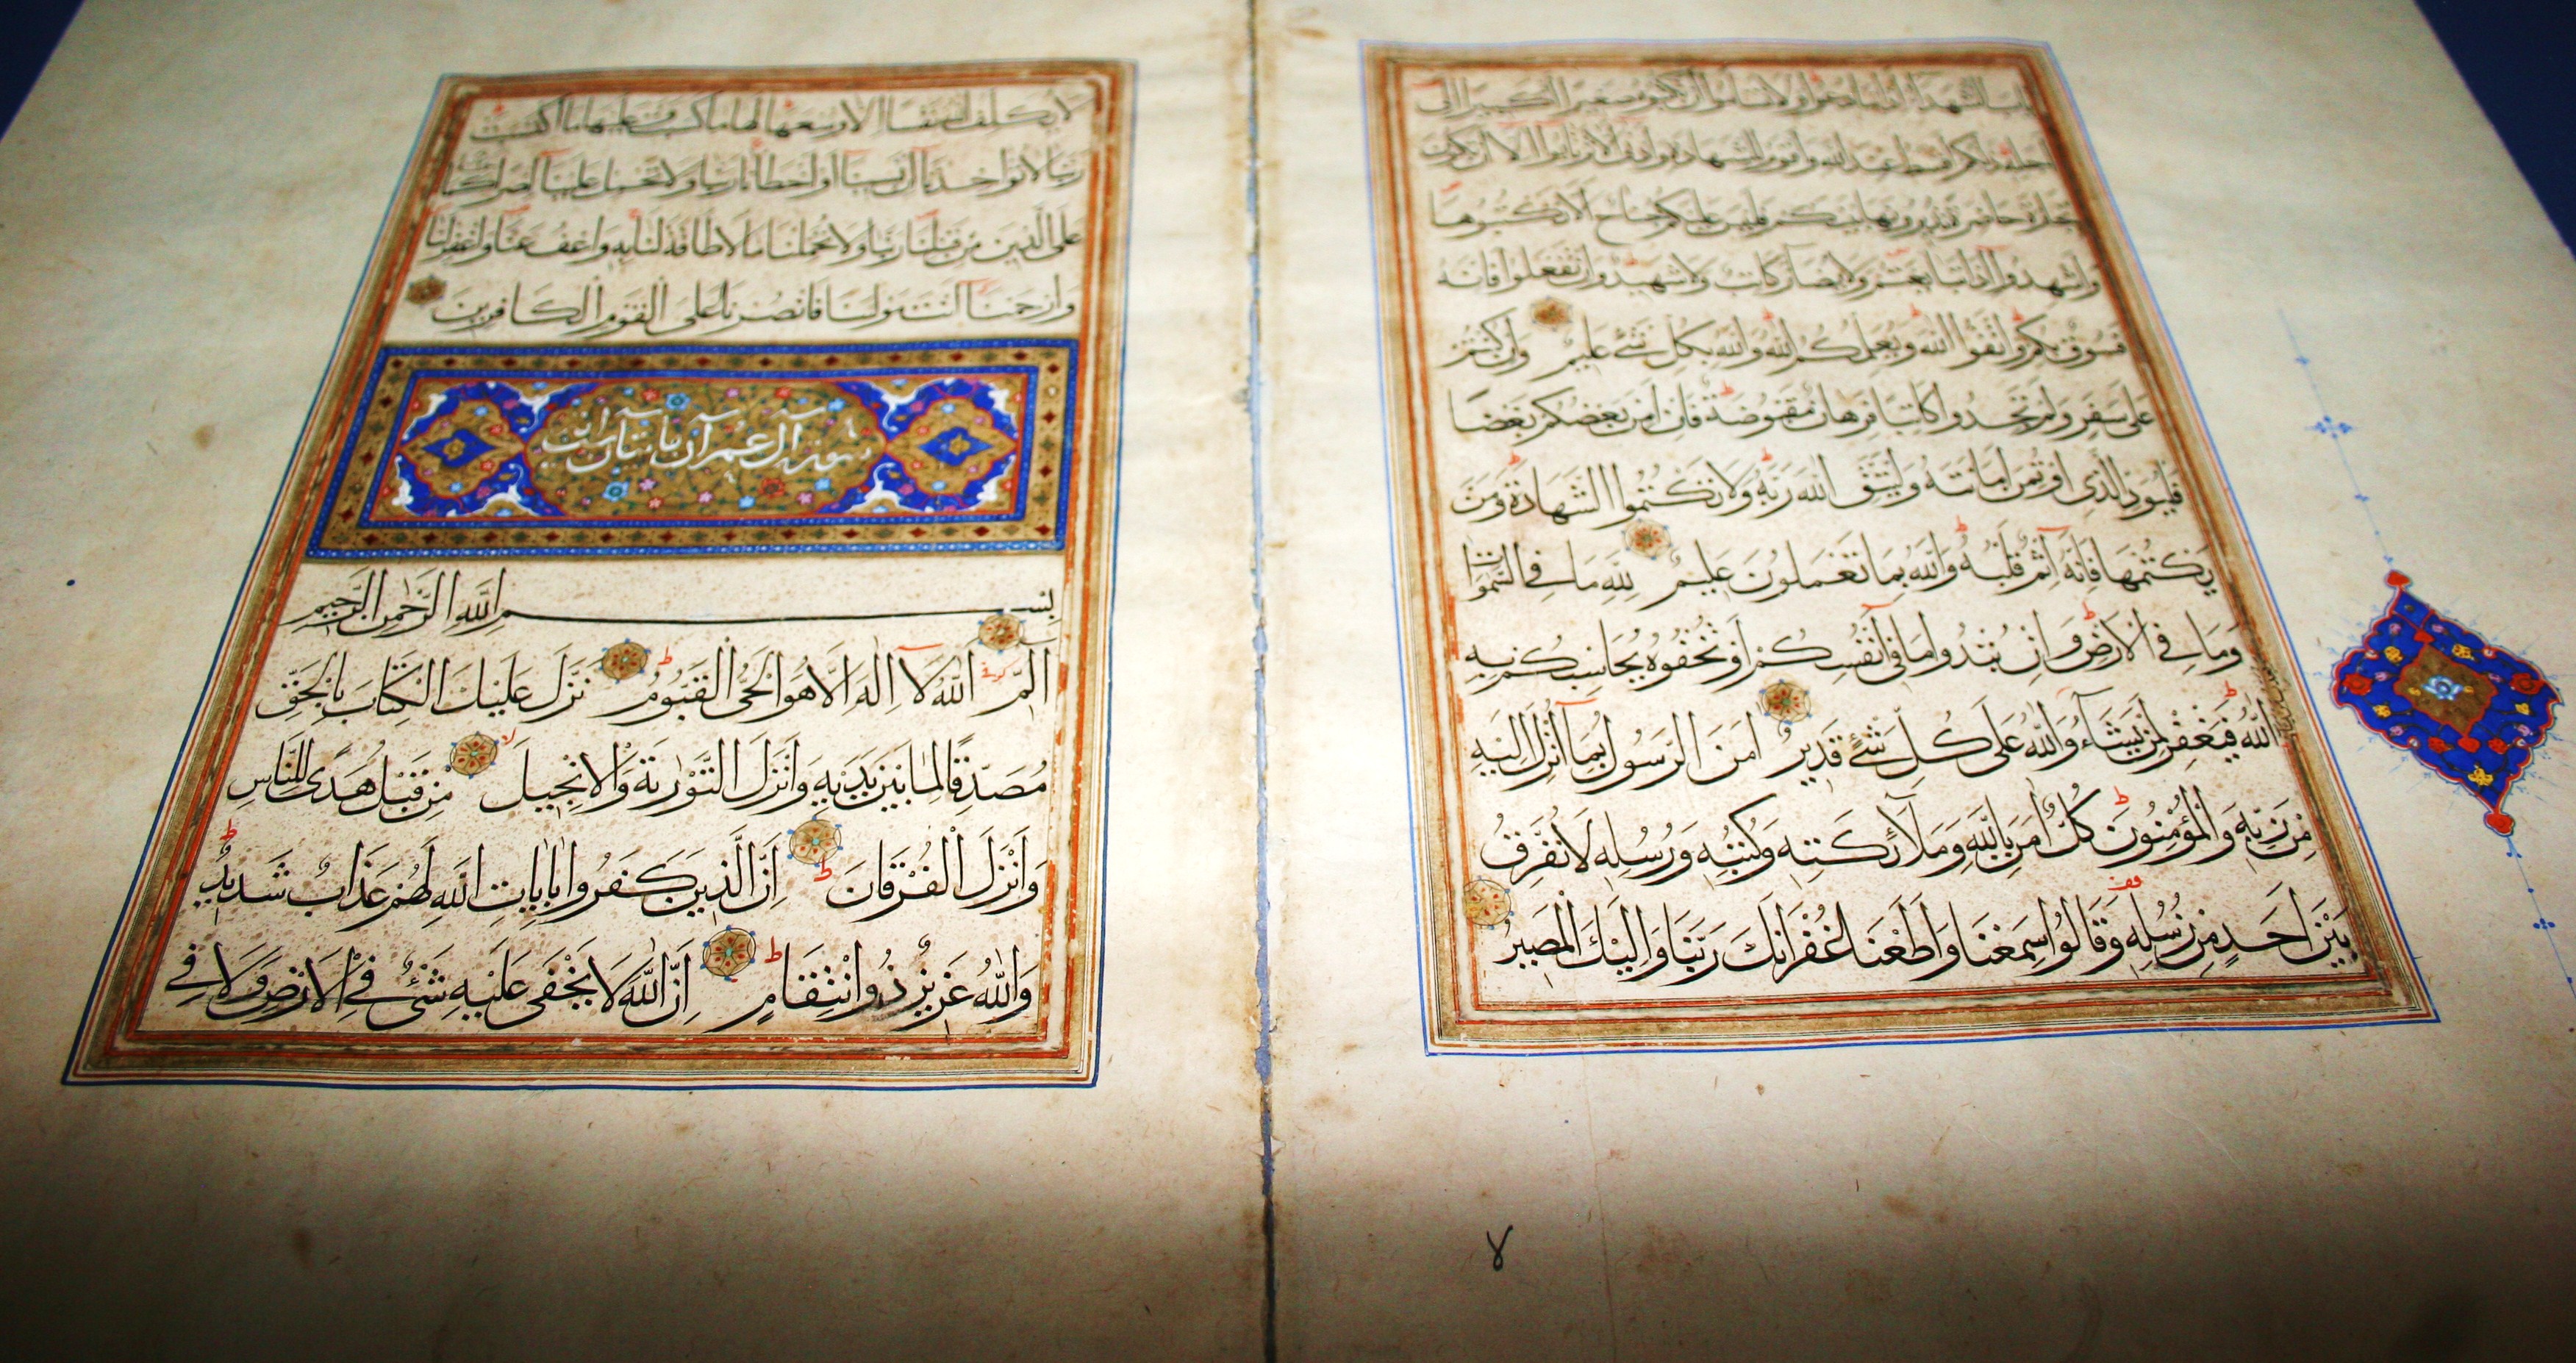 الشهداء اذا ما دعوا ولا تسأموا ان تكتبوه صغيرا او كبيرا الى
اجله ذلكم اقسط عند الله واقوم للشهادة وادنى الا ترتابوا الا ان تكون
تجارة حاضرة تديرونها بينكم فليس عليكم جناح الا تكتبوها
واشهدوا اذا تبايعتم ولا يضار كاتب ولا شهيد وان تفعلوا فانه
فسوق بكم واتقوا الله ويعلمكم الله والله بكل شئ عليم وان كنتم
على سفر ولم تجدوا كاتبا فرهان مقبوضة فان امن بعضكم بعضا
فليؤد الذى اؤتمن امانته وليتق الله ربه ولا تكتموا الشهادة ومن
يكتمها فانه آثم قلبه والله بما تعملون عليم لله ما فى السموات
وما فى الارض وان تبدوا ما فى انفسكم او تخفوه يحاسبكم به
الله فيغفر لمن يشاء والله على كل شئ قدير امن الرسول بما انزل اليه
من ربه والمؤمنون كل امن بالله وملآئكته وكتبه ورسله لا نفرق
بين احد من رسله وقالوا سمعنا واطعنا غفرانك ربنا واليك المصير
٧
لا يكلف الله نفسا الا وسعها لها ما كسبت وعليها ما اكتسبت
ربنا لا تؤاخذنا ان نسينا او اخطأنا ربنا ولا تحمل علينا اصرا كما حملته
على الذين من قبلنا ربنا ولا تحملنا ما لا طاقة لنا به واعف عنا واغفر لنا
وارحمنا انت مولينا فانصرنا على القوم الكافرين
سورة آل عمران مائتا آية
بسم الله الرحمن الرحيم
الم الله لا اله الا هو الحى القيوم نزل عليك الكتاب بالحق
مصدقا لما بين يديه وانزل التورية والانجيل من قبل هدى للناس
وانزل الفرقان ان الذين كفروا بايات الله لهم عذاب شديد
والله عزيز ذو انتقام ان الله لا يخفى عليه شئ فى الارض ولا فى